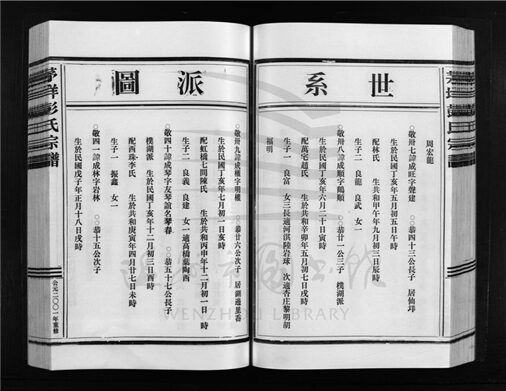 世系
派圖
周宏龍
敬卅七諱成旺字聲建 ○恭四十三公長子 居仙垟
生於民國丁亥年五月初五日午時
配林氏 生共和甲午年九月初三日辰時
生子二 良龍 良武 女一
敬卅八諱成順字鶴順 ○恭廿一公三子 樸湖派
生於民國丁亥年六月二十日寅時
配萬宅趙氏 生於共和辛卯年五月初七日戌時
生子一 良富 女三長適河淇陸岩球 次適杏庄黎明朝
福明
敬卅九諱成權字明權 ○恭廿六公次子 居湖邊里岙
生於民國丁亥年七月初一日亥時
配虹橋七間陳氏 生於共和丙申年十二月初一日 時
生子二 良義 良建 女一適高橋葉陶西
敬四十諱成琴字友琴諡名琴春 ○恭五十七公長子
樸湖派 生於民國丁亥年十二月初三日酉時
配西珠李氏 生共和庚寅年四月廿七日未時
生子一 振鑫 女一
敬四一諱成林字岩林 ○恭十五公次子
生於民國戊子年正月十八日戌時
茅垟彭氏宗譜
公元二〇〇一年重修
WENZHOU LIBRARY